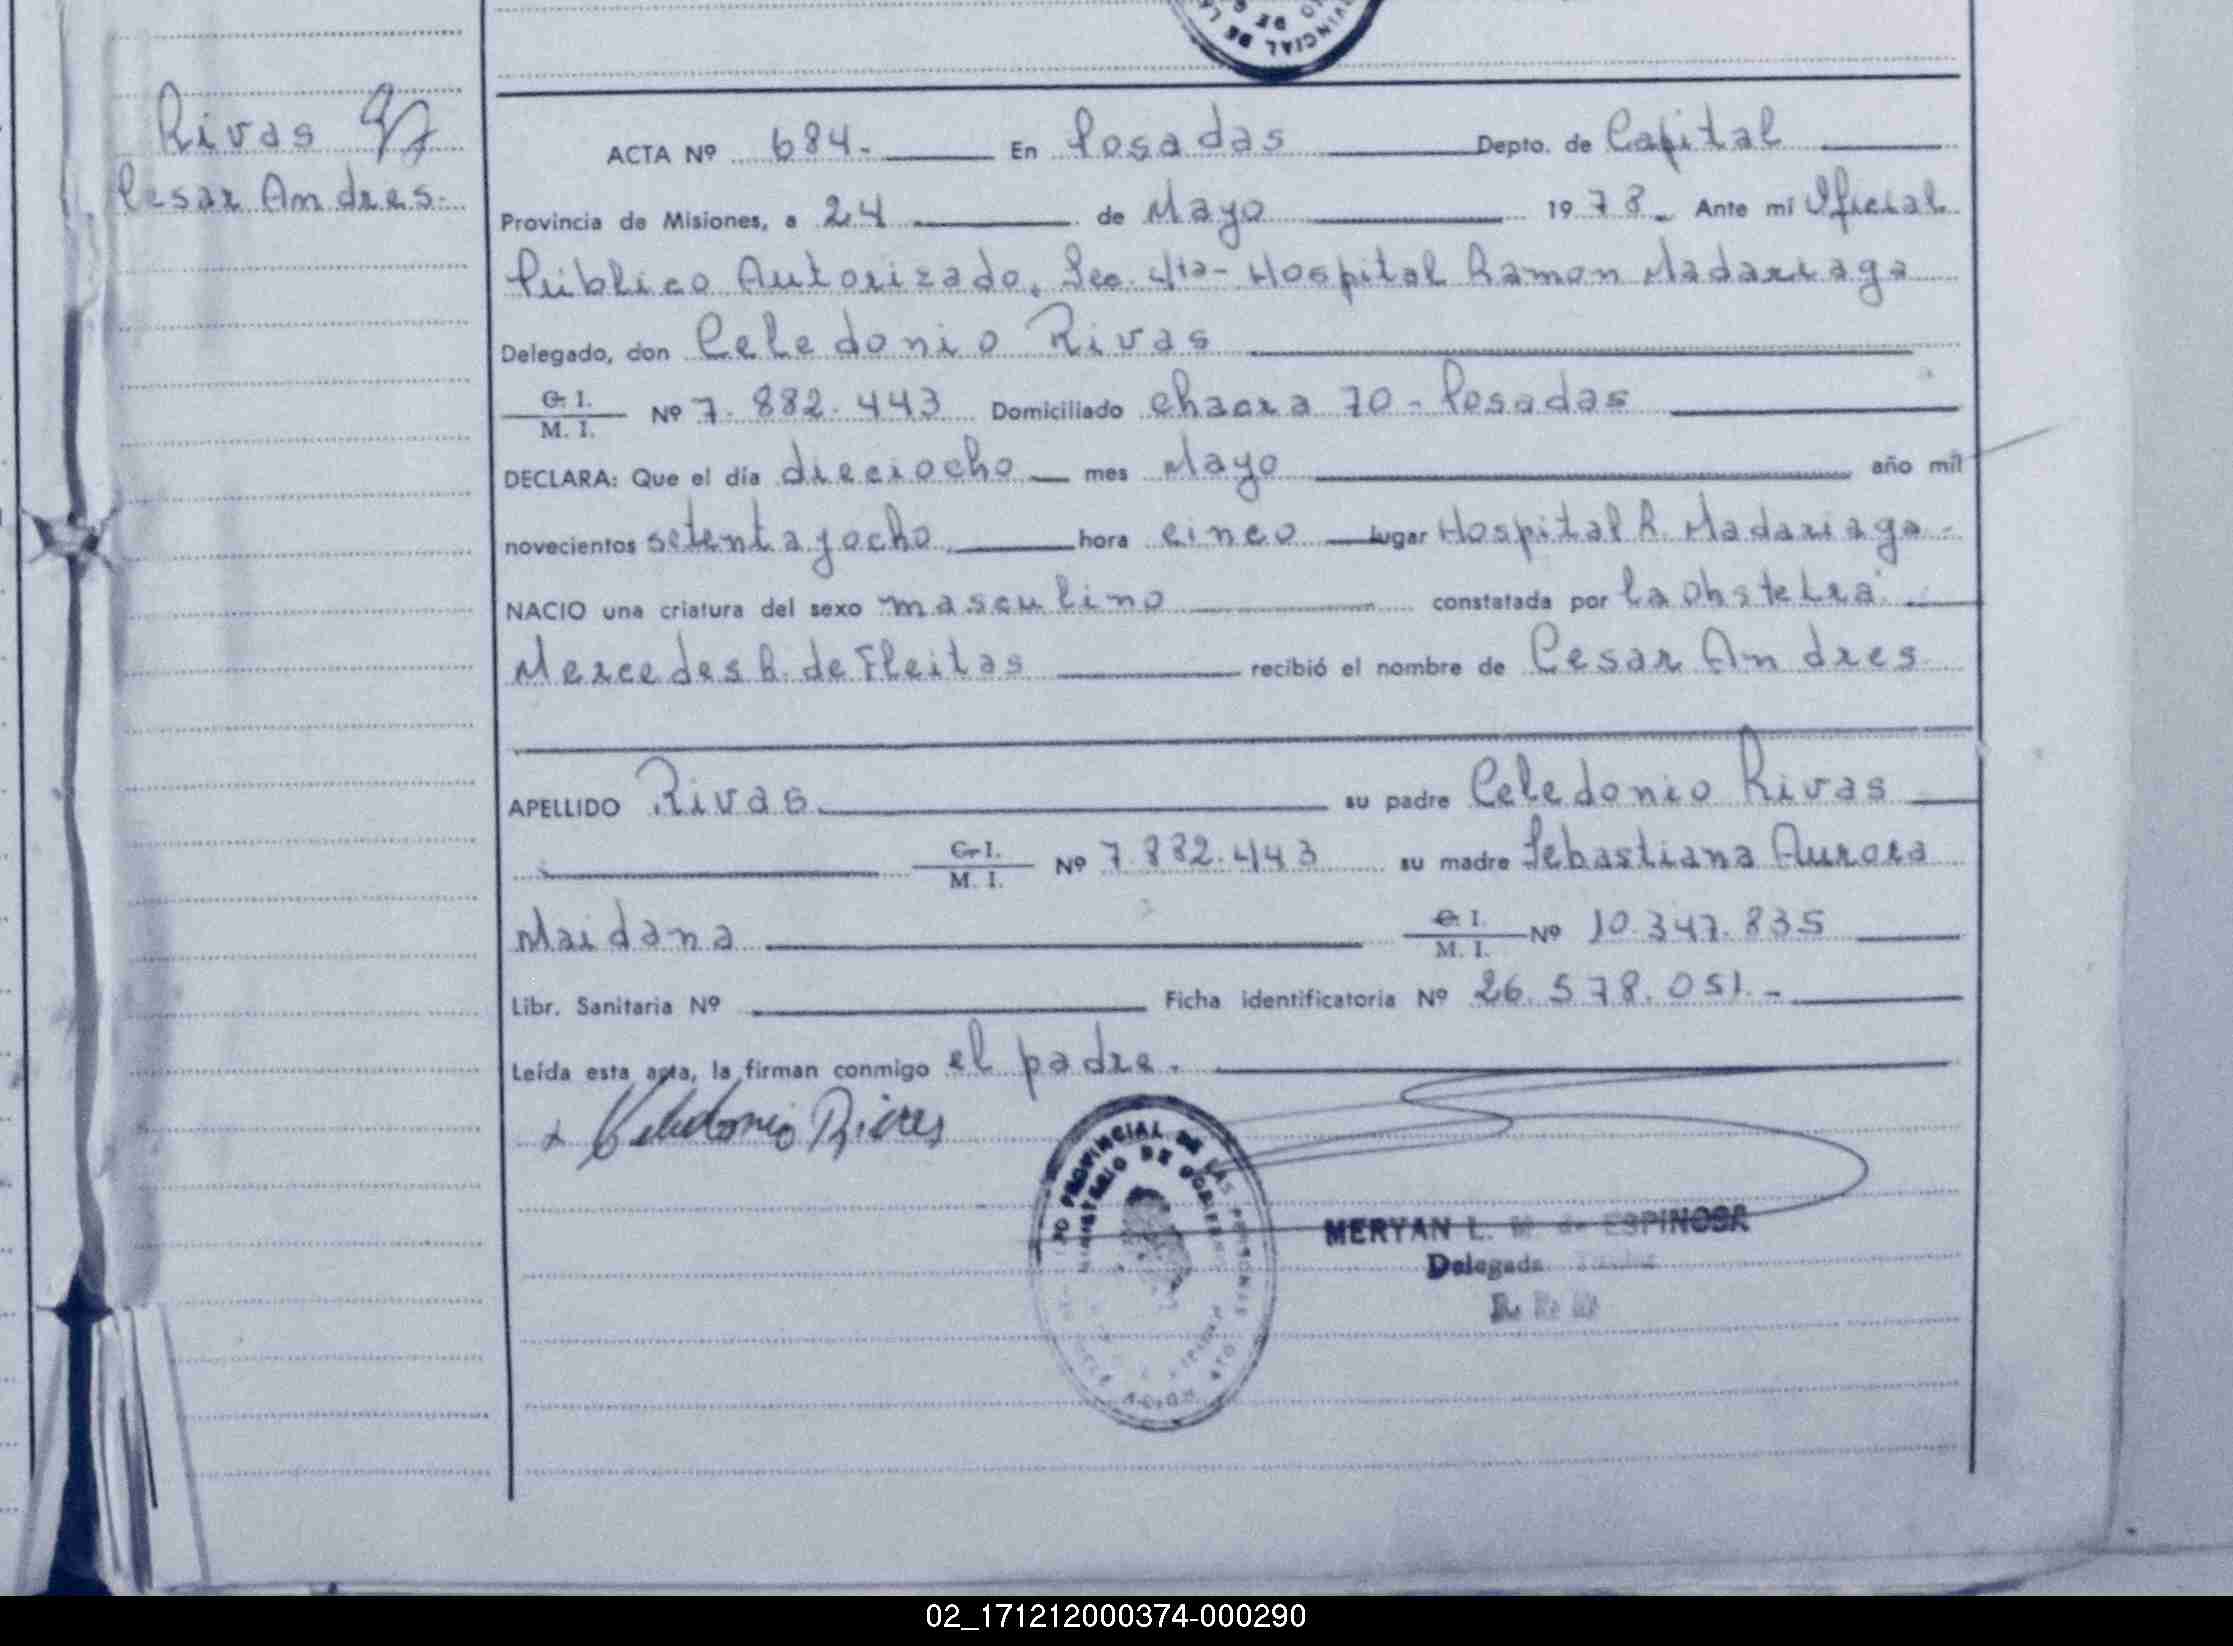 Rivas
Cesar Andres.
ACTA Nº 684. En Posadas Depto. de Capital
Provincia de Misiones, a 24 de Mayo 1978. Ante mi Oficial
Público Autorizado. Sec. 4ta- Hospital Ramon Madariaga
Delegado, don Celedonio Rivas
C. I.
M. I. Nº 7.882.443 Domiciliado chacra 70 - Posadas
DECLARA: Que el día dieciocho mes Mayo año mil
novecientos setenta y ocho hora cinco lugar Hospital R. Madariaga -
NACIO una criatura del sexo masculino constatada por la obstetra
Mercedes R. de Fleitas recibió el nombre de Cesar Andres
APELLIDO Rivas su padre Celedonio Rivas
C. I.
M. I. Nº 7.882.443 su madre Sebastiana Aurora
Maidana C. I.
M. I. Nº 10.347.835
Libr. Sanitaria Nº Ficha identificatoria Nº 26.578.051.-
Leída esta acta, la firman conmigo el padre.
PROVINCIAL DE LAS PERSONAS
MINISTERIO DE GOBIERNO
MERYAN L. M. de ESPINOSA
Delegada
02_171212000374-000290